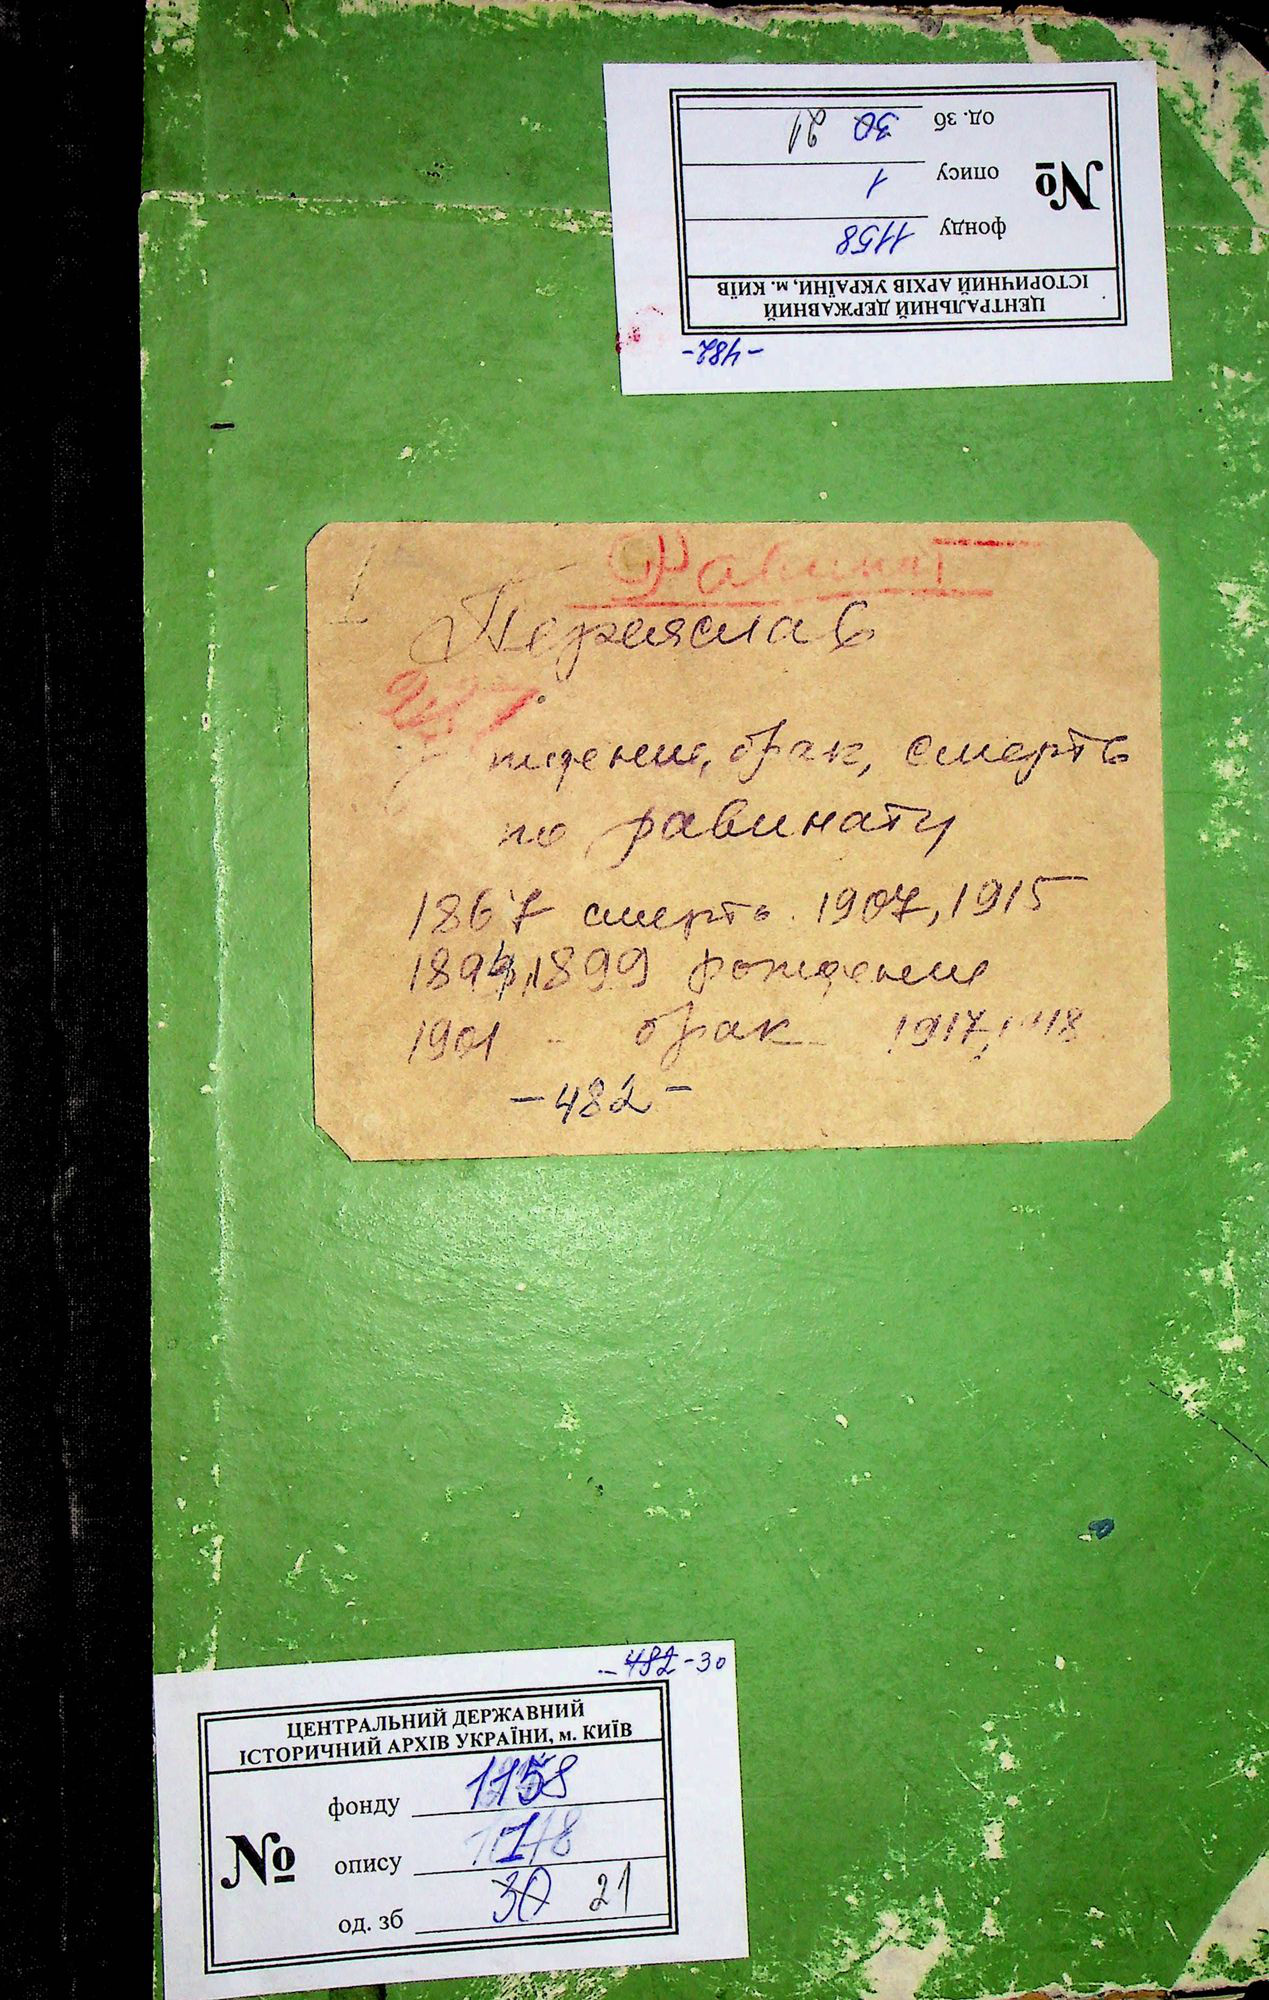 ЦЕНТРАЛЬНИЙ ДЕРЖАВНИЙ
ІСТОРИЧНИЙ АРХІВ УКРАЇНИ, м. КИЇВ
№
фонду 1158
опису 1
од. зб 30 21
-482-
Равинат
Переяслав
ждение, брак, смерть
по равинату
1867 смерть 1907, 1915
1899 рождение
1901 - брак - 1917, 1918
-482-
-482-30
ЦЕНТРАЛЬНИЙ ДЕРЖАВНИЙ
ІСТОРИЧНИЙ АРХІВ УКРАЇНИ, м. КИЇВ
№
фонду 1158
опису 1
од. зб 30 21